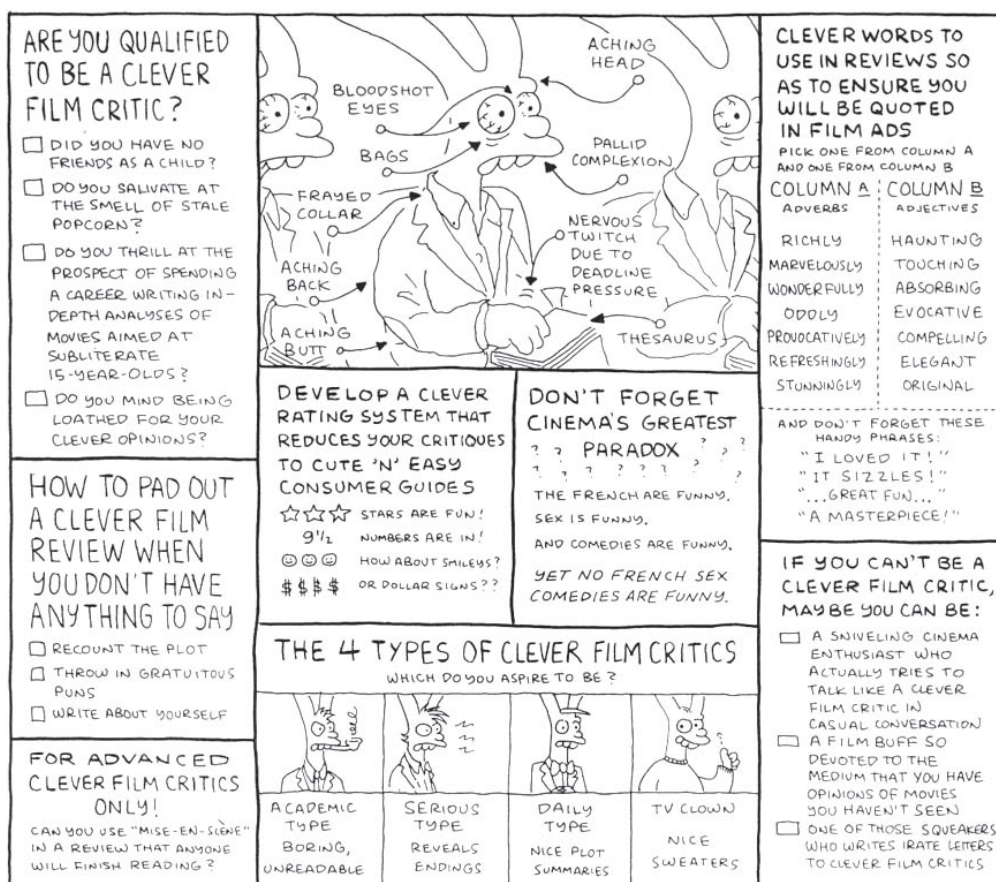 ARE YOU QUALIFIED
TO BE A CLEVER
FILM CRITIC?
DID YOU HAVE NO
FRIENDS AS A CHILD?
DO YOU SALIVATE AT
THE SMELL OF STALE
POPCORN?
DO YOU THRILL AT THE
PROSPECT OF SPENDING
A CAREER WRITING IN-
DEPTH ANALYSES OF
MOVIES AIMED AT
SUBLITERATE
15-YEAR-OLDS?
DO YOU MIND BEING
LOATHED FOR YOUR
CLEVER OPINIONS?
HOW TO PAD OUT
A CLEVER FILM
REVIEW WHEN
YOU DON'T HAVE
ANYTHING TO SAY
RECOUNT THE PLOT
THROW IN GRATUITOUS
PUNS
WRITE ABOUT YOURSELF
FOR ADVANCED
CLEVER FILM CRITICS
ONLY!
CAN YOU USE "MISE-EN-SCÈNE"
IN A REVIEW THAT ANYONE
WILL FINISH READING?
ACHING
HEAD
BLOODSHOT
EYES
BAGS
PALLID
COMPLEXION
FRAYED
COLLAR
NERVOUS
TWITCH
DUE TO
DEADLINE
PRESSURE
ACHING
BACK
ACHING
BUTT
THESAURUS
DEVELOP A CLEVER
RATING SYSTEM THAT
REDUCES YOUR CRITIQUES
TO CUTE 'N' EASY
CONSUMER GUIDES
☆☆☆ STARS ARE FUN!
9½ NUMBERS ARE IN!
☺☺☺ HOW ABOUT SMILEYS?
$$$$ OR DOLLAR SIGNS??
DON'T FORGET
CINEMA'S GREATEST
? ? PARADOX ? ? ?
? ? ? ? ? ? ? ?
THE FRENCH ARE FUNNY.
SEX IS FUNNY.
AND COMEDIES ARE FUNNY.
YET NO FRENCH SEX
COMEDIES ARE FUNNY.
THE 4 TYPES OF CLEVER FILM CRITICS
WHICH DO YOU ASPIRE TO BE?
ACADEMIC
TYPE
BORING,
UNREADABLE
SERIOUS
TYPE
REVEALS
ENDINGS
DAILY
TYPE
NICE PLOT
SUMMARIES
TV CLOWN
NICE
SWEATERS
CLEVER WORDS TO
USE IN REVIEWS SO
AS TO ENSURE YOU
WILL BE QUOTED
IN FILM ADS
PICK ONE FROM COLUMN A
AND ONE FROM COLUMN B
COLUMN A COLUMN B
ADVERBS ADJECTIVES
RICHLY HAUNTING
MARVELOUSLY TOUCHING
WONDERFULLY ABSORBING
ODDLY EVOCATIVE
PROVOCATIVELY COMPELLING
REFRESHINGLY ELEGANT
STUNNINGLY ORIGINAL
AND DON'T FORGET THESE
HANDY PHRASES:
"I LOVED IT!"
"IT SIZZLES!"
"...GREAT FUN..."
"A MASTERPIECE!"
IF YOU CAN'T BE A
CLEVER FILM CRITIC,
MAYBE YOU CAN BE:
A SNIVELING CINEMA
ENTHUSIAST WHO
ACTUALLY TRIES TO
TALK LIKE A CLEVER
FILM CRITIC IN
CASUAL CONVERSATION
A FILM BUFF SO
DEVOTED TO THE
MEDIUM THAT YOU HAVE
OPINIONS OF MOVIES
YOU HAVEN'T SEEN
ONE OF THOSE SQUEAKERS
WHO WRITES IRATE LETTERS
TO CLEVER FILM CRITICS